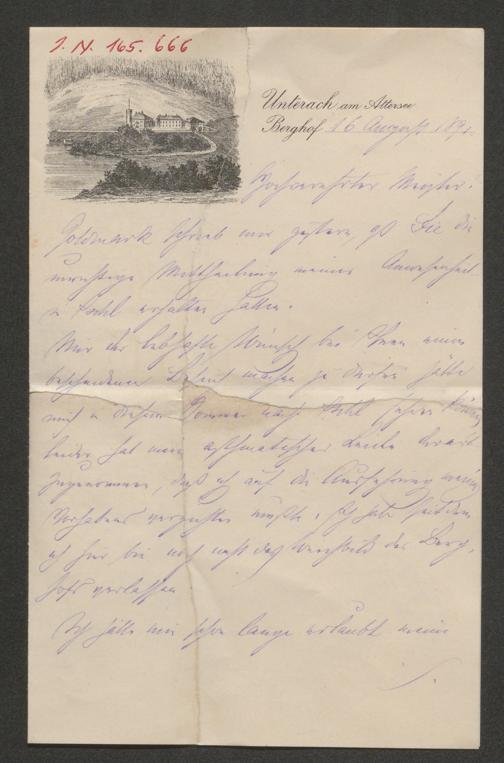 J. N. 165. 666
Unterach am Attersee
Berghof 16 August 189
Hochverehrter Meister!
Goldmark schrieb mir gestern, daß Sie die
unrichtige Mittheilung meiner Anwesenheit
in Ischl erhalten hätten.
Nur der lebhafte Wunsch bei Ihnen einen
bescheidenen Besuch machen zu dürfen hätte
mich in diesem Sommer nach Ischl führen können,
leider hat mein asthmatisches Leiden derart
zugenommen, daß ich auf die Ausführung meines
Vorhabens verzichten mußte. Ich habe seitdem
ich hier bin noch nicht das des Berg-
hofs verlassen
Ich hätte mir schon lange erlaubt meine